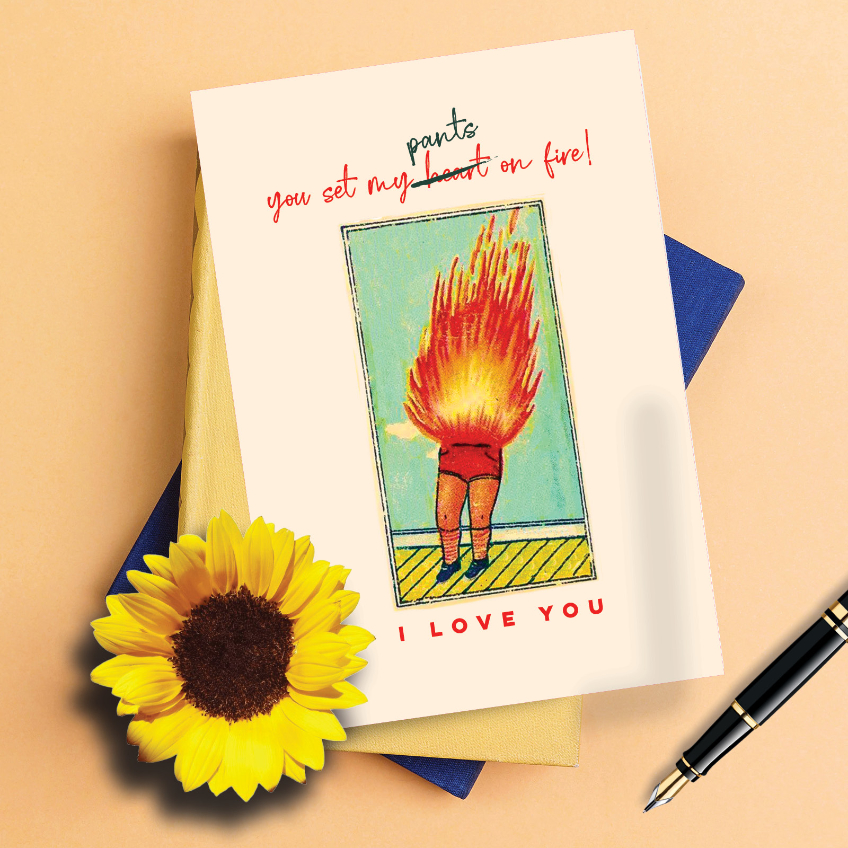 pants
you set my heart on fire!
I LOVE YOU